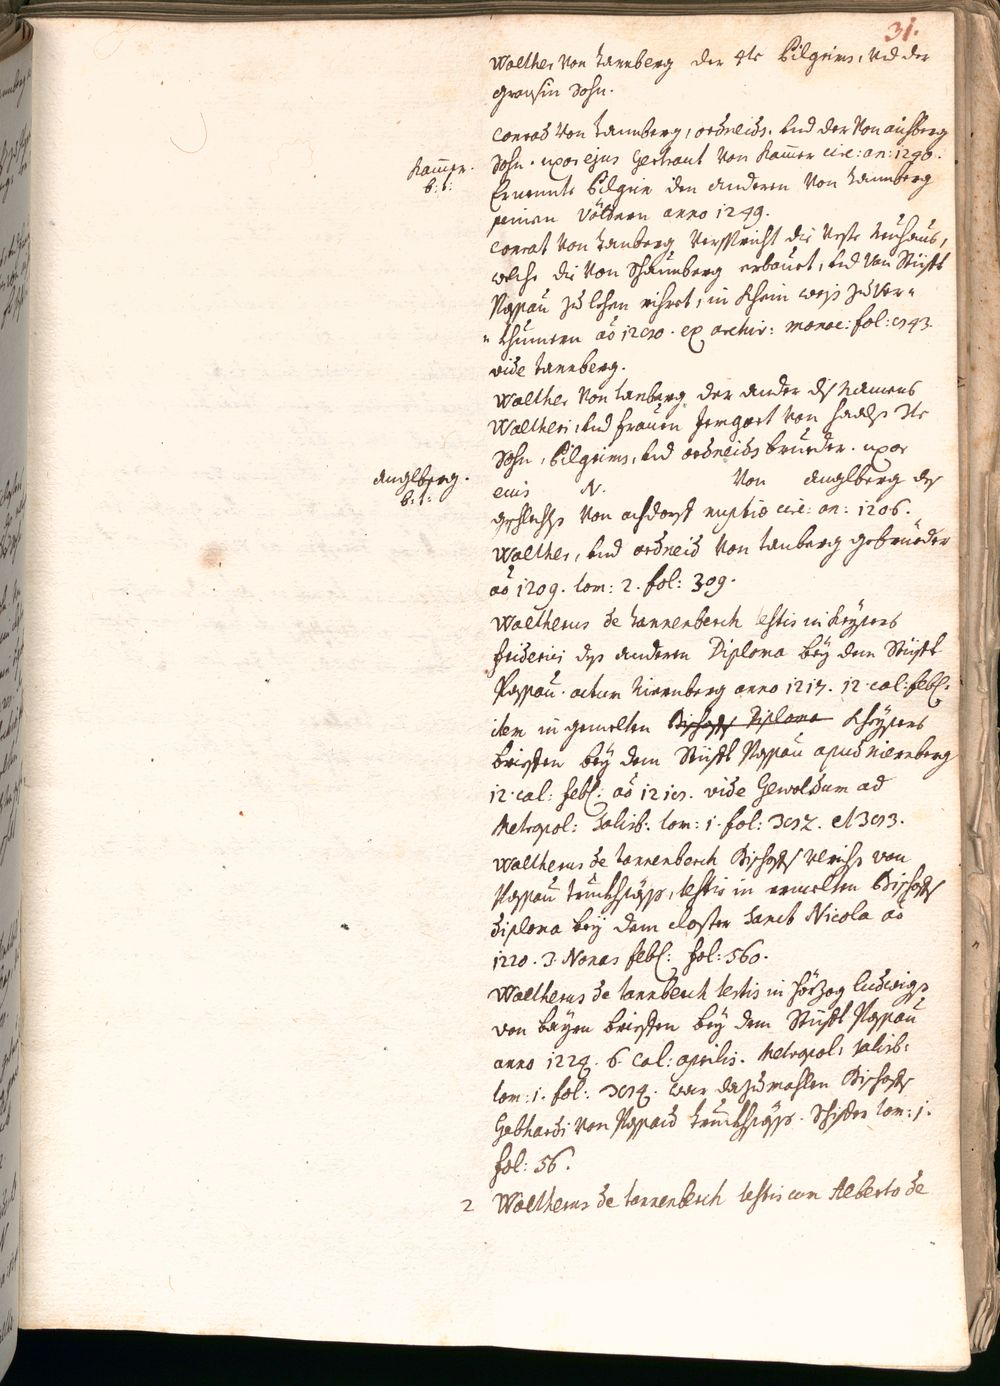 31.
Walther von Tannberg der 4te Pilgrims, und der
graussin Sohn.
Conrad von Tannberg, ortneids, und der von aichberg
Sohn. uxor ejus Gertraut von Kammer circ: an: 1240.
Kammer.
b: t:
Ernennte Pilgrim den anderen von Tannberg
seinen Vöttern anno 1249.
Conrat von Tanberg verspricht die Veste Neuhaus,
welche die von Schaumberg erbauet, und von Stüfft
Passau zu lehen rihret, in khein weis zu ver=
=khümern aõ 12 . ex archiv: monac: fol:
vide Tannberg.
Walther von Tanberg der ander dis Namens
Waltheri, und frauen Jrmgart von Haalss 3te
Sohn, Pilgrims, und ortneids bruder. uxor
Anglberg.
b: t:
eius N. von Anglberg des
geschlechts von achdorf nuptiæ circ: an: 1206.
Walther, und ortneid von Tanberg gebrüeder
aõ 1209. tom: 2. fol: 309.
Waltherus de Tannenberch testis in Keysers
friderici des anderen Diploma bey dem Stüfft
Passau. actum Niernberg anno 1217. 12. cal: febr:
item in gemelten Bischoffs Diploma Kheysers
brieffen bey dem Stüfft Passau apud niernberg
12. cal: febr: aõ . vide Gewoldum ad
Metropol: Salisb: tom: 1. fol: et
Waltherus de Tannenberch Bischoffs Ulrichs von
Passau truckhsäss, testis in ermelten Bischoffs
diploma bey dem closter Sanct Nicola aõ
1220. 3. Nonas febr: fol: 560.
Waltherus de tannberch testis in Hörzog ludwigs
von bayrn brieffen bey dem Stüfft Passau
anno 1224. 6. Cal: aprilis. Metropol: Salisb:
tom: 1. fol: . war dazumahlen Bischoffs
Gebhardi von Passau truckhsäss. tom: 1.
fol: 56.
2 Waltherus de tannenberch testis cum Alberto de